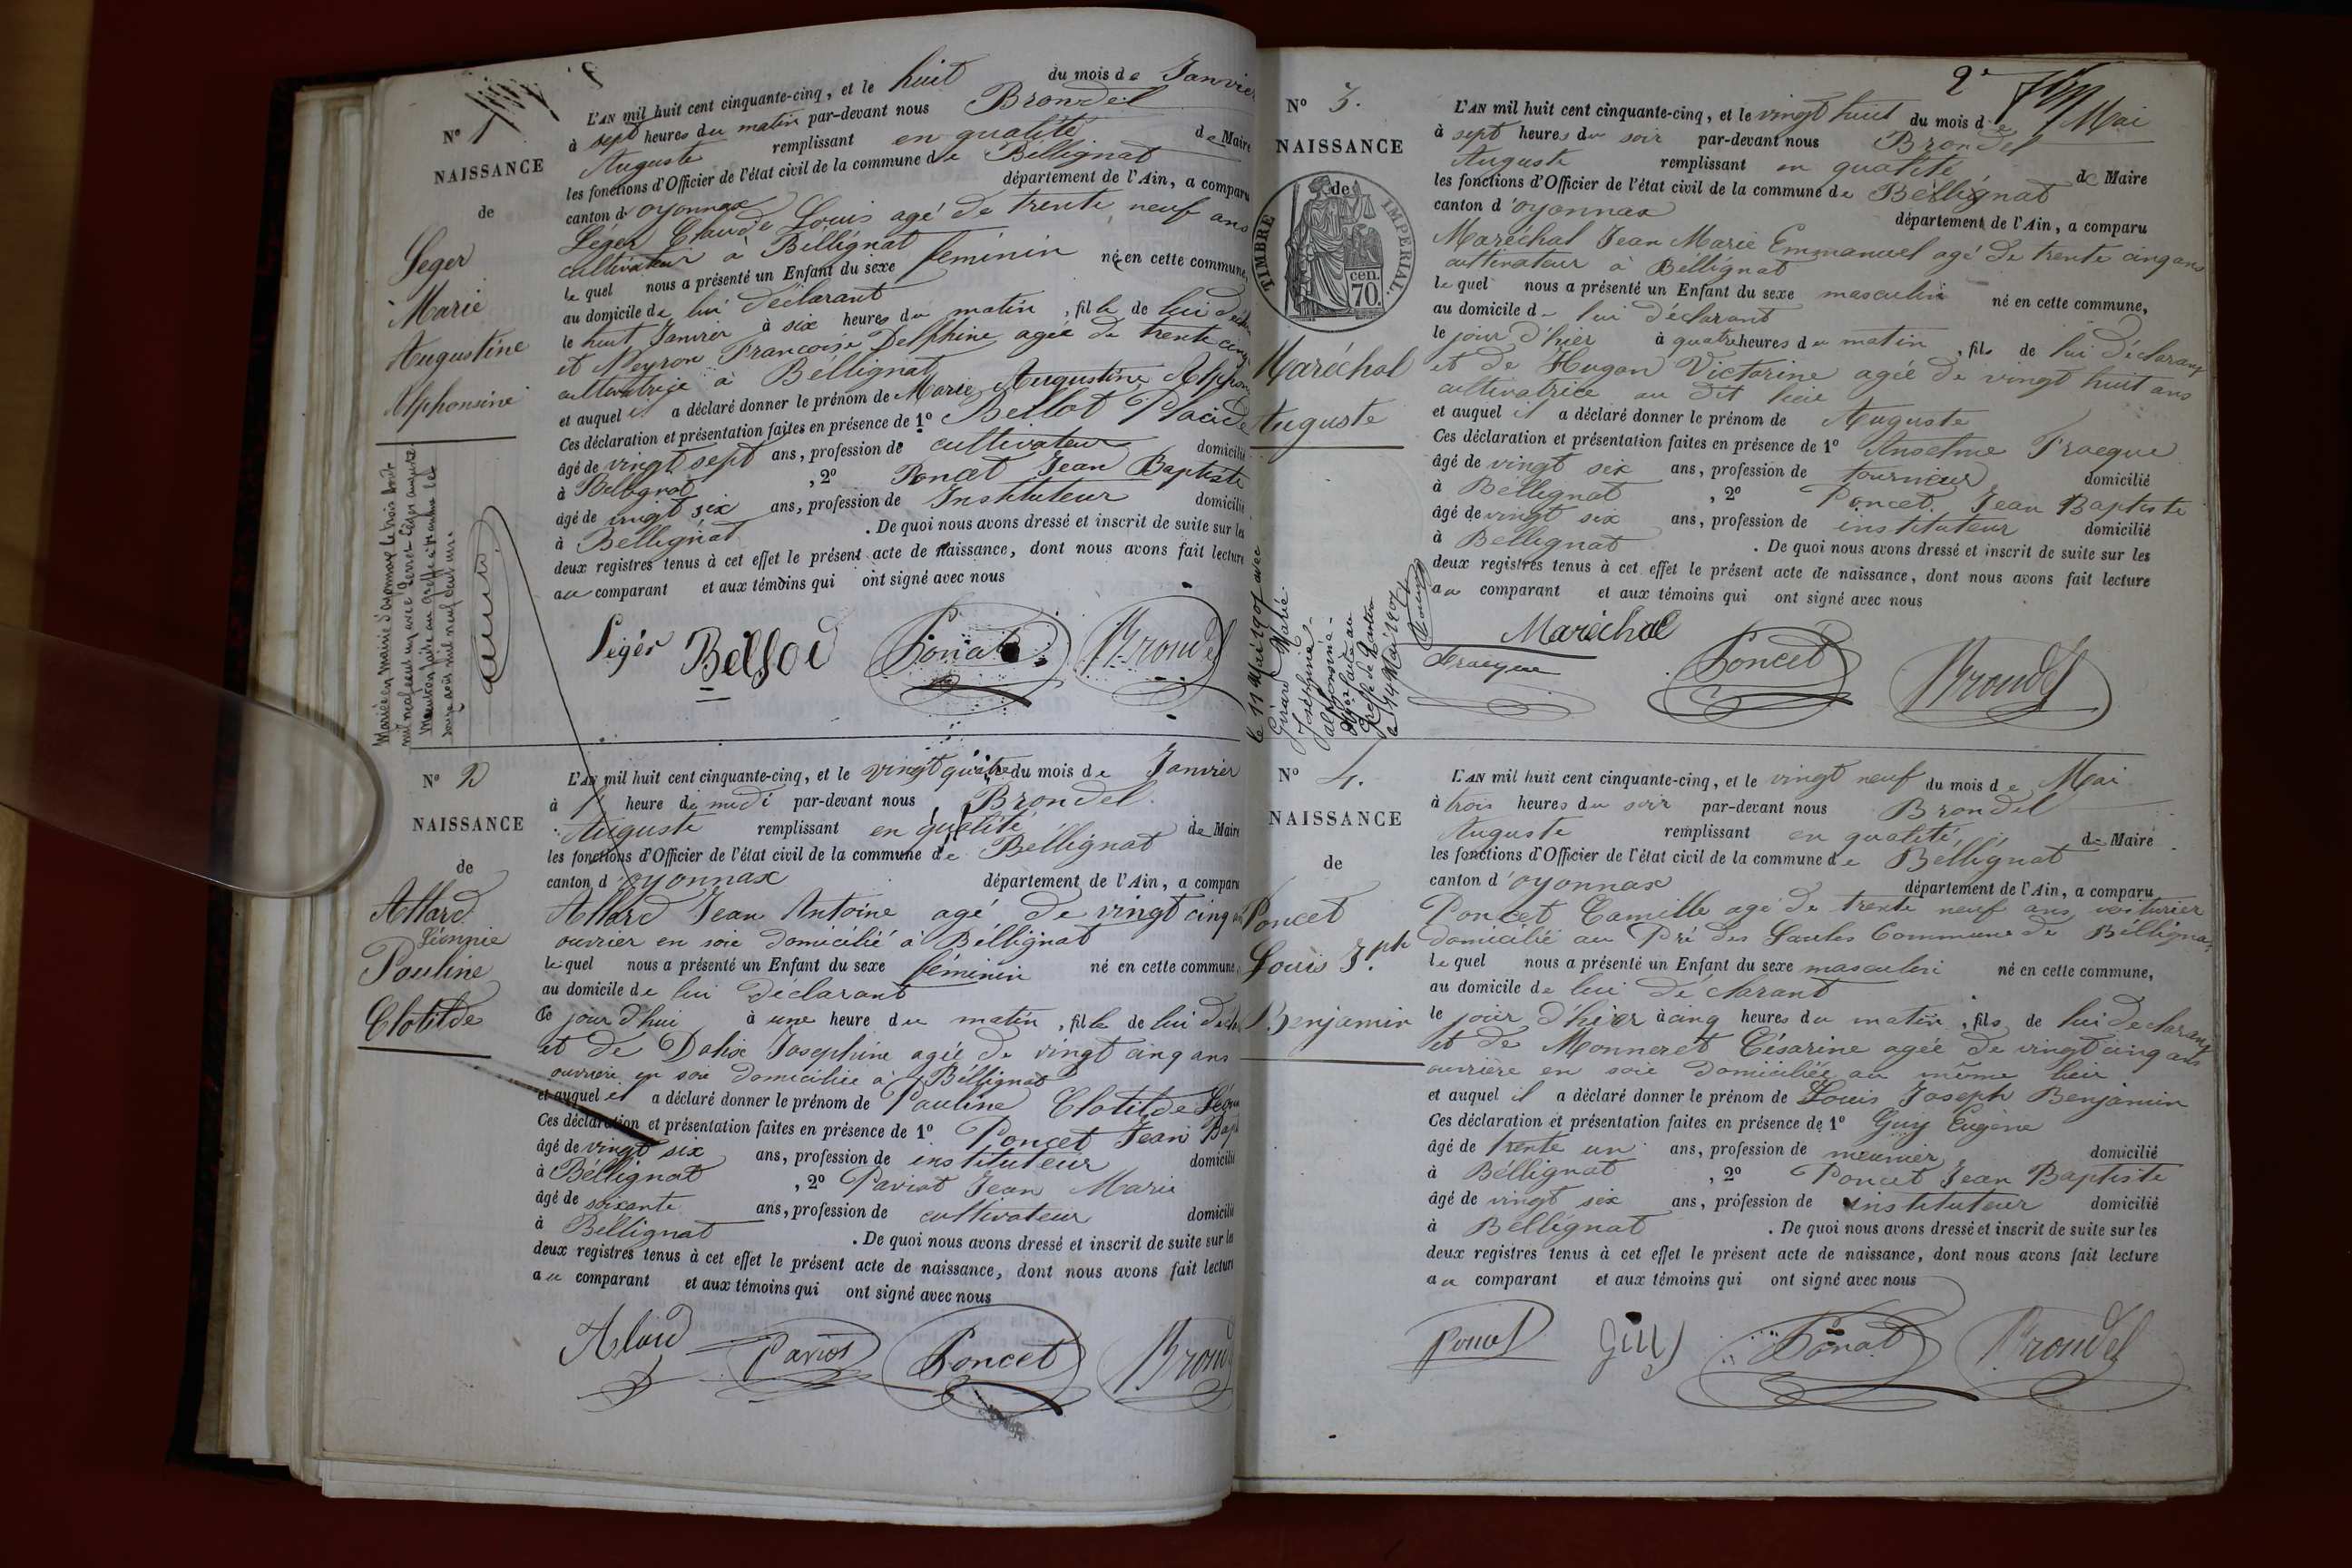 N° 1
NAISSANCE
de
Leger
Marie
Augustine
Alphonsine
L'AN mil huit cent cinquante-cinq, et le huit du mois de Janvier
à sept heures du matin par-devant nous Brondel
Auguste remplissant en qualité de Maire
les fonctions d'Officier de l'état civil de la commune de Béllignat
canton d'oyonnax département de l'Ain, a comparu
Léger Claude Louis agé de trente neuf ans
cultivateur à Béllignat
le quel nous a présenté un Enfant du sexe féminin né en cette commune,
au domicile de lui déclarant
le huit Janvier à six heures du matin, fille de lui
et Neyron Francoise Delphine agée de trente cinq
cultivatrice à Béllignat
et auquel il a déclaré donner le prénom de Marie Augustine
Ces déclaration et présentation faites en présence de 1° Bellot Placide
âgé de vingt sept ans, profession de cultivateur domicilié
à Béllignat, 2° Poncet Jean Baptiste
âgé de vingt six ans, profession de Instituteur domicilié
à Bellignat. De quoi nous avons dressé et inscrit de suite sur les
deux registres tenus à cet effet le présent acte de naissance, dont nous avons fait lecture
au comparant et aux témoins qui ont signé avec nous
Légér Poncet Brondel
Mariée en mairie d'oyonnax le trois
mil neuf cent un avec
Mention faite au greffe
N° 2
NAISSANCE
de
Allard
Léonnie
Pauline
Clotilde
L'AN mil huit cent cinquante-cinq, et le vingt quatre du mois de Janvier
à 1 heure de midi par-devant nous Brondel
Auguste remplissant en qualité de Maire
les fonctions d'Officier de l'état civil de la commune de Béllignat
canton d'oyonnax département de l'Ain, a comparu
Allard Jean Antoine agé de vingt cinq
ouvrier en soie domicilié à Béllignat
le quel nous a présenté un Enfant du sexe féminin né en cette commune,
au domicile de lui déclarant
Ce jour d'hui à une heure du matin, fille de lui
et de Josephine agée de vingt cinq ans
ouvriere en soie domiciliée à Béllignat
et auquel il a déclaré donner le prénom de Pauline Clotilde
Ces déclaration et présentation faites en présence de 1° Poncet Jean
âgé de vingt six ans, profession de instituteur domicilié
à Béllignat, 2° Paviot Jean Marie
âgé de soixante ans, profession de cultivateur domicilié
à Béllignat. De quoi nous avons dressé et inscrit de suite sur les
deux registres tenus à cet effet le présent acte de naissance, dont nous avons fait lecture
au comparant et aux témoins qui ont signé avec nous
Alard Paviot Poncet
2e
N° 3.
NAISSANCE
de
TIMBRE IMPERIAL.
70. cen.
Maréchal
Auguste
L'AN mil huit cent cinquante-cinq, et le vingt huit du mois de Mai
à sept heures du soir par-devant nous Brondel
Auguste remplissant en qualité de Maire
les fonctions d'Officier de l'état civil de la commune de Bellignat
canton d'oyonnax département de l'Ain, a comparu
Maréchal Jean Marie Emmanuel agé de trente cinq ans
cultivateur à Béllignat
le quel nous a présenté un Enfant du sexe masculin né en cette commune,
au domicile de lui déclarant
le jour d'hier à quatre heures du matin, fils de lui déclarant
et de Hugon Victorine agée de vingt huit ans
cultivatrice au dit lieu
et auquel il a déclaré donner le prénom de Auguste
Ces déclaration et présentation faites en présence de 1° Anselme
âgé de vingt six ans, profession de tourneur domicilié
à Bellignat, 2° Poncet Jean Baptiste
âgé de vingt six ans, profession de instituteur domicilié
à Bellignat. De quoi nous avons dressé et inscrit de suite sur les
deux registres tenus à cet effet le présent acte de naissance, dont nous avons fait lecture
au comparant et aux témoins qui ont signé avec nous
Maréchal
Poncet Brondel
le 11 Mai 1907 avec
Girard Marie
Joséphine
alphonsine
faite au
Greffe de Nantua
le 14 Mai 1907
N° 4.
NAISSANCE
de
Poncet
Louis Jph
Benjamin
L'AN mil huit cent cinquante-cinq, et le vingt neuf du mois de Mai
à trois heures du soir par-devant nous Brondel
Auguste remplissant en qualité de Maire
les fonctions d'Officier de l'état civil de la commune de Bellignat
canton d'oyonnax département de l'Ain, a comparu
Poncet Camille agé de trente neuf ans voiturier
domicilié au Pré des Saules Commune de Béllignat
le quel nous a présenté un Enfant du sexe masculin né en cette commune,
au domicile de lui déclarant
le jour d'hier à cinq heures du matin, fils de lui declarant
et de Monneret Césarine agée de vingt cinq ans
ouvrière en soie domiciliée au même lieu
et auquel il a déclaré donner le prénom de Louis Joseph Benjamin
Ces déclaration et présentation faites en présence de 1° Guy Eugène
âgé de trente un ans, profession de meunier domicilié
à Béllignat, 2° Poncet Jean Baptiste
âgé de vingt six ans, profession de instituteur domicilié
à Béllignat. De quoi nous avons dressé et inscrit de suite sur les
deux registres tenus à cet effet le présent acte de naissance, dont nous avons fait lecture
au comparant et aux témoins qui ont signé avec nous
Poncet Guy Poncet Brondel